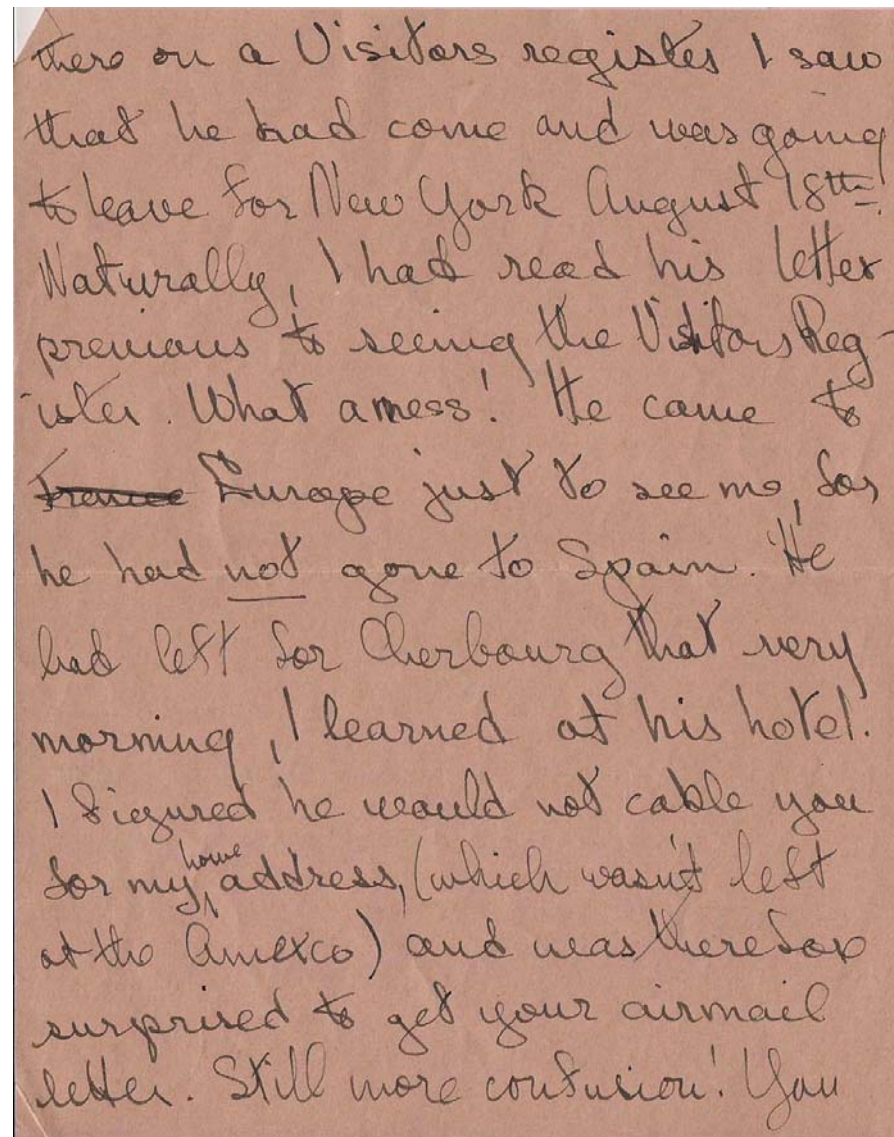 there on a Visitors register I saw
that he had come and was going
to leave for New York August 18th.
Naturally, I had read his letter
previous to seeing the Visitors Reg-
ister. What a mess! He came to
France Europe just to see me, for
he had not gone to Spain. He
had left for Cherbourg that very
morning, I learned at his hotel.
I figured he would not cable you
for my home address, (which wasn't left
at the Amexco) and was therefore
surprised to get your airmail
letter. Still more confusion! You